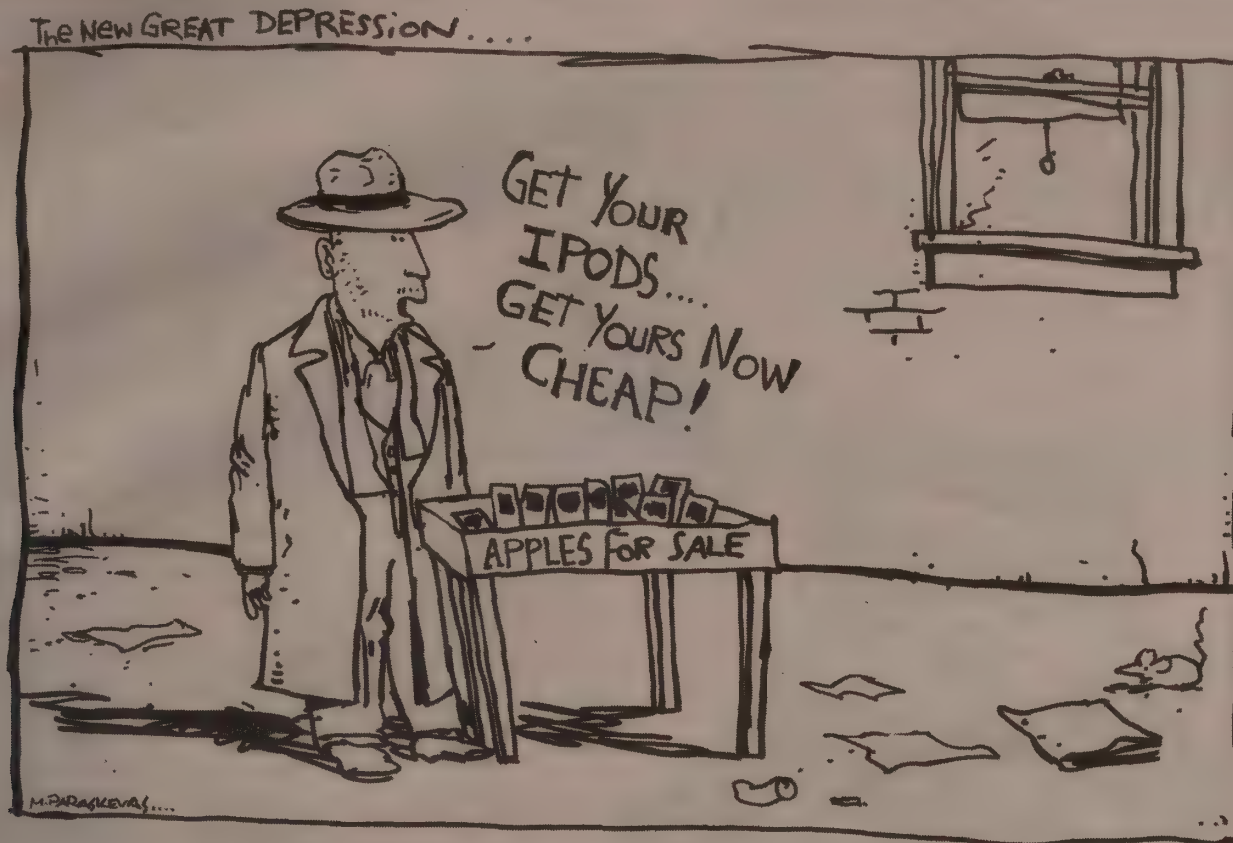 The New GREAT DEPRESSION....
GET YOUR
IPODS....
GET YOURS NOW
CHEAP!
APPLES FOR SALE
M. PARASKEVAS....